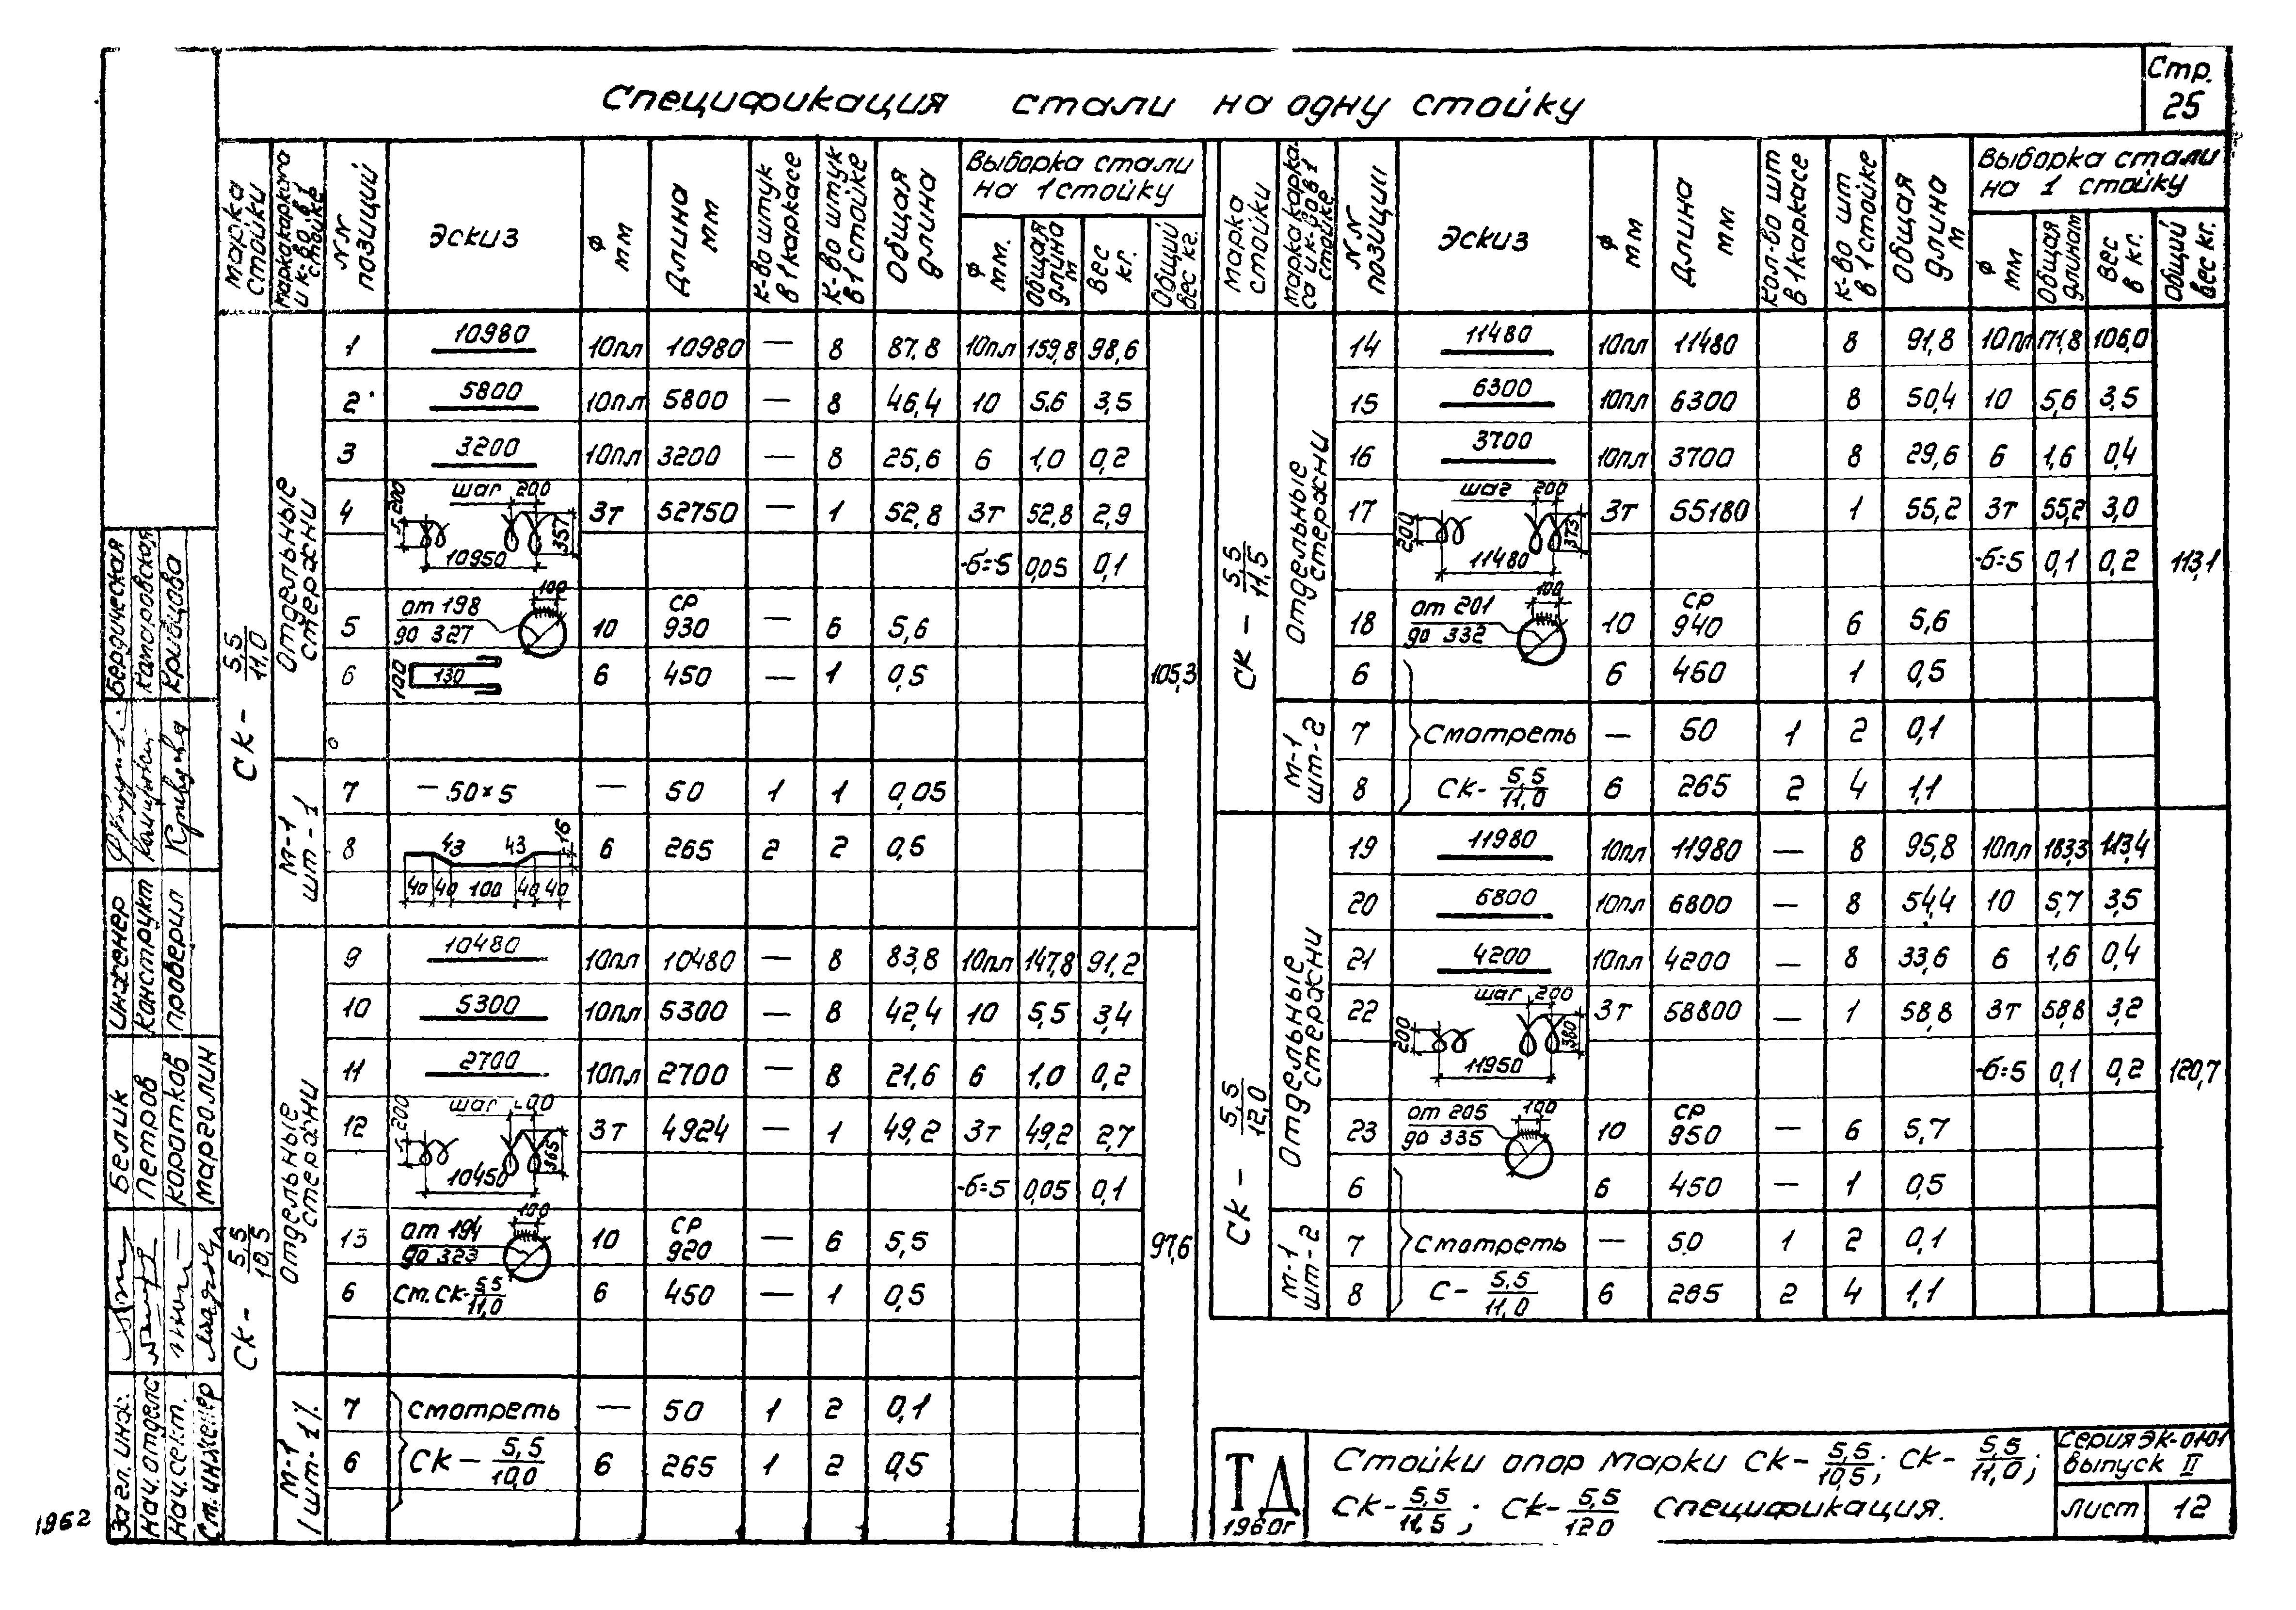 Стр.
25
Спецификация стали на одну стойку
Марка стойки
Марка каркаса и к-во в 1 стойке
N.N позиций
Эскиз
ф мм
Длина мм
К-во штук в 1 каркасе
К-во штук в 1 стойке
Общая длина
Выборка стали на 1 стойку
ф мм.
Общая длина м
Вес кг.
Общий вес кг.
СК - 5,5/11,0
Отдельные стержни
1 10980 10пл 10980 — 8 87,8 10пл 159,8 98,6
2 5800 10пл 5800 — 8 46,4 10 5.6 3,5
3 3200 10пл 3200 — 8 25,6 6 1,0 0,2
4 200 шаг 200 357 10950 3т 52750 — 1 52,8 3т 52,8 2,9
-б=5 0,05 0,1
5 от 198 до 327 100 10 ср 930 — 6 5,6
6 100 130 6 450 — 1 0,5
105,3
М-1 шт-1
7 — 50×5 — 50 1 1 0,05
8 43 43 16 40 40 100 40 40 6 265 2 2 0,5
СК - 5,5/10,5
Отдельные стержни
9 10480 10пл 10480 — 8 83,8 10пл 147,8 91,2
10 5300 10пл 5300 — 8 42,4 10 5,5 3,4
11 2700 10пл 2700 — 8 21,6 6 1.0 0,2
12 200 шаг 365 10450 3т 4924 — 1 49,2 3т 49,2 2,7
-б=5 0,05 0,1
13 от 194 до 323 100 10 ср 920 — 6 5,5
6 См. СК-5,5/11,0 6 450 — 1 0,5
97,6
М-1
7 смотреть — 50 1 2 0,1
6 СК — 5,5/10,0 6 265 1 2 0,5
Марка стойки
Марка каркаса и к-во в 1 стойке
N.N позиции
Эскиз
ф мм
Длина мм
Кол-во шт в 1 каркасе
К-во шт в 1 стойке
Общая длина м
Выборка стали на 1 стойку
ф мм
Общая длина м
Вес в кг.
Общий вес кг.
СК - 5,5/11,5
Отдельные стержни
14 11480 10пл 11480 8 91,8 10пл 171,8 106,0
15 6300 10пл 6300 8 50,4 10 5,6 3,5
16 3700 10пл 3700 8 29,6 6 1,6 0,4
17 200 шаг 200 373 11480 3т 55180 1 55,2 3т 55,2 3,0
-б=5 0,1 0,2
113,1
18 от 201 до 332 100 10 ср 940 6 5,6
6 6 460 1 0,5
М-1 шт-2
7 Смотреть — 50 1 2 0,1
8 СК- 5,5/11,0 6 265 2 4 1,1
СК - 5,5/12,0
Отдельные стержни
19 11980 10пл 11980 — 8 95,8 10пл 183,3 113,4
20 6800 10пл 6800 — 8 54,4 10 5,7 3,5
21 4200 10пл 4200 — 8 33,6 6 1,6 0,4
22 200 шаг 200 380 11950 3т 58800 — 1 58,8 3т 58,8 3,2
-б=5 0,1 0,2
120,7
23 от 205 до 335 100 10 ср 950 — 6 5,7
6 6 450 — 1 0,5
М-1 шт-2
7 Смотреть — 50 1 2 0,1
8 С- 5,5/11,0 6 265 2 4 1,1
ТД
1960г
Стойки опор марки СК-5,5/10,5; СК-5,5/11,0;
СК-5,5/11,5; СК-5,5/120 Спецификация.
Серия ЭК-01-01
выпуск II
Лист 12
Бердическая
Комаровская
Кривцова
Инженер
Конструкт
Проверил
Белик
Петров
Коротков
Марголин
Нач. отдела
Нач. сект.
Ст. инженер
1962